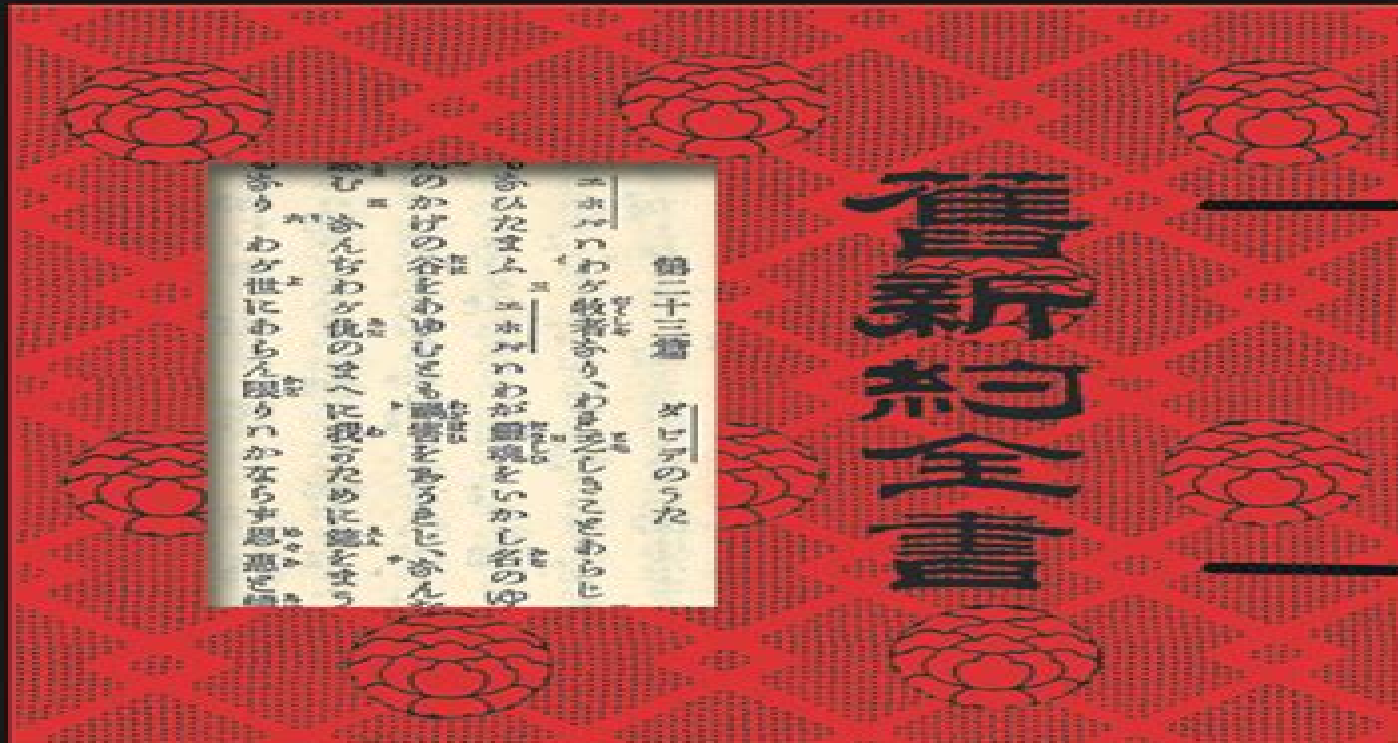 舊新約全書
第二十三篇 ダビデのうた
ヱホバハわが牧者なり、われ乏しきことあらじ
なひたまふ ヱホバハわが靈魂をいかし名のゆ
のかげの谷をあゆむとも禍害をおそれじ、なん
む なんぢわが仇のまへに我がために筵をまう
なり わが世にあらん限りハかならず恩惠と